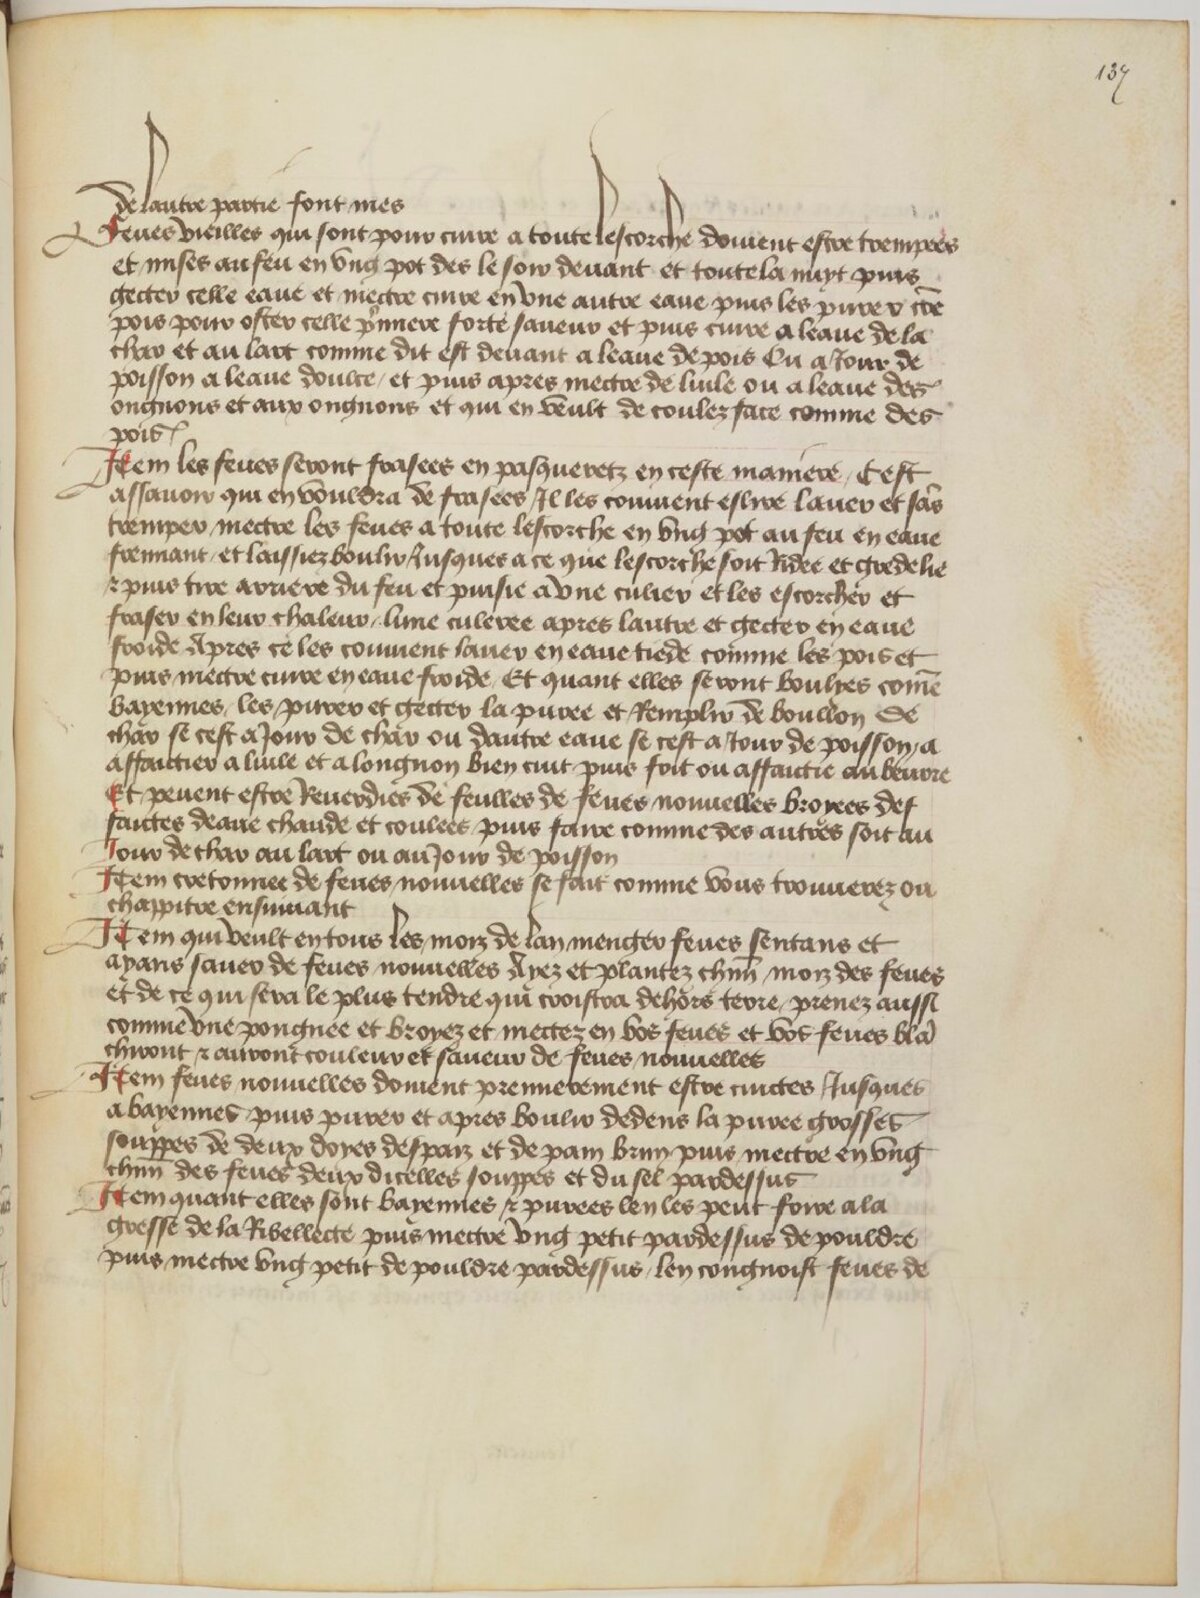 137
de lautre partie font mes
Feues vieilles qui sont pour cuire a toute lescorche doiuent estre trempees
et mises au feu en vng pot des le soir deuant et toute la nuyt puis
gecter celle eaue et mectre cuire en vne autre eaue puis les purer cōe
pois pour oster celle pꝰmiere forte saueur et puis cuire a leaue de la
char et au lart comme dit est deuant a leaue de pois Ou a Jour de
poisson a leaue doulce / et puis apres mectre de luile ou a leaue des
ongnons et aux ongnons et qui en veult de coulez face comme des
pois /
Item les feues seront frasees en pasqueretz en ceste maniere / Cest
assauoir qui en vouldra de frasees / Il les conuient eslire lauer et sās
tremper mectre les feues a toute lescorche en vng pot au feu en eaue
fremiant / et laissiez boulir Jusques a ce que lescorche soit Ridee et gredelie
⁊ puis tire arriere du feu et puisie a vne culier et les escorcher et
fraser en leur chaleur / lune culeree apres lautre et gecter en eaue
froide Apres ce les conuient lauer en eaue tiede comme les pois et
puis mectre cuire en eaue froide / Et quant elles seront boulyes comē
bayennes / les purer et gecter la puree et Remplir de boullon de
char se cest a Jour de char ou dautre eaue se cest a Jour de poisson / a
affaictier a luile et a longnon bien cuit puis frit ou affaictie au beurre
Et peuent estre Reuerdies de feulles de feues nouuelles broyees def
faictes deaue chaude et coulees puis faire comme des autres soit au
Jour de char au lart ou au Jour de poisson
Item cretonnee de feues nouuelles se fait comme vous trouuerez ou
chappitre ensuiuant
Item qui veult en tous les mois de lan menger feues sentans et
ayans sauer de feues nouuelles Ayez et plantez chūn mois des feues
et de ce qui sera le plus tendre qui croistra dehors terre / prenez aussi
comme vne pongnee et broyez et mectez en vos feues et vos feues blā
chiront ⁊ auront couleur et saueur de feues nouuelles
Item feues nouuelles doiuent premierement estre cuictes Jusques
a bayennes puis purer et apres boulir dedens la puree grosses
souppes de deux doyes despaiz et de pain brun puis mectre en vng
chūn des feues deux dicelles souppes et du sel pardessus
Item quant elles sont bayennes ⁊ purees len les peut frire a la
gresse de la Riblecte puis mectre vng petit pardessus de pouldre
puis mectre vng petit de pouldre pardessus / len congnoist feues de